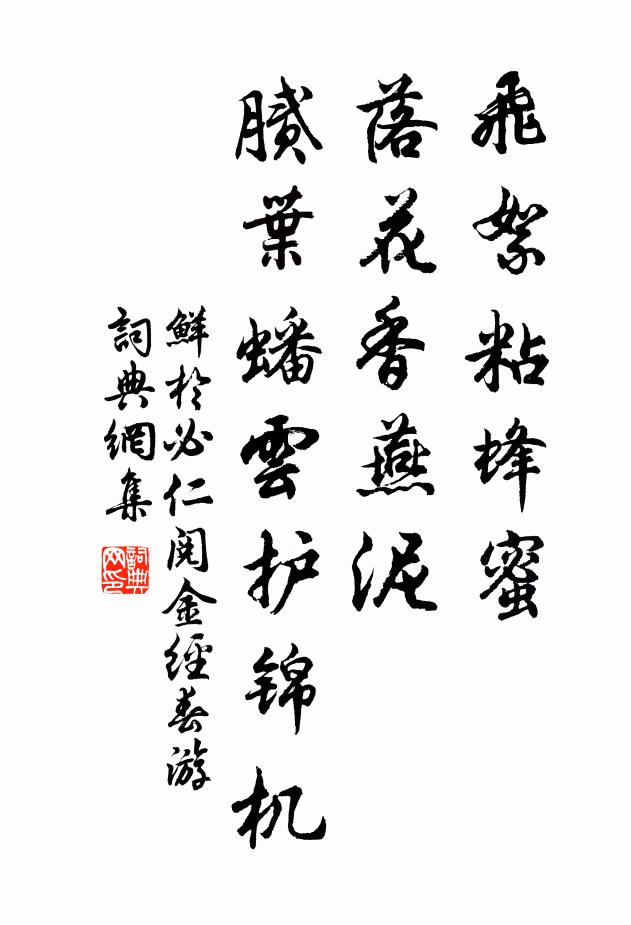 飛絮粘蜂蜜
落花香燕泥
膩葉蟠雲护锦机
鮮於必仁阅金經春游
詞典網集
詞典网印